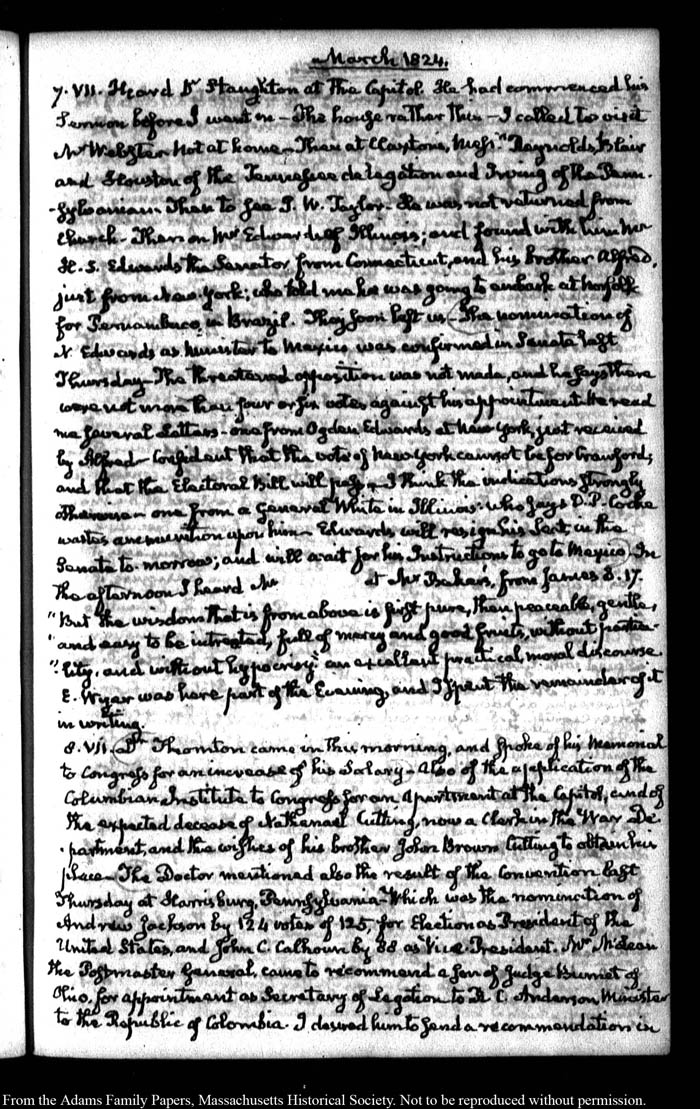 March 1824.
7. VII. Heard Dr Staughton at the Capitol. He had commenced his
Sermon before I went in — The house rather thin — I called to visit
Mr Webster not at home — Then at Claxton's, Messrs Reynolds, Blair
and Houston of the Tennessee delegation and Irving of the Penn-
-sylvanian. Then to see J. W. Taylor. He was not returned from
Church — Then on Mr Edwards of Illinois; and found with him Mr
H. S. Edwards the Senator from Connecticut, and his brother Alfred,
just from New York; who told me he was going to embark at Norfolk
for Pernambuco, in Brazil. They soon left us — The nomination of
N. Edwards as Minister to Mexico was confirmed in Senate last
Thursday — The threatened opposition was not made, and he says there
were not more than four or six votes against his appointment. He read
me several Letters — one from Ogden Edwards at New York, just received
by Alfred — Confident that the vote of New York cannot be for Crawford;
and that the Electoral Bill will pass — I think the indications strongly
otherwise — one from a General White in Illinois: who says D. P. Cooke
wastes ammunition upon him — Edwards will resign his Seat, in the
Senate to-morrow; and will wait for his Instructions to go to Mexico. In
the afternoon I heard Mr at Mr Baker's, from James 3. 17.
"But the wisdom that is from above is first pure, then peaceable, gentle,
"and easy to be intreated, full of mercy and good fruits, without partia-
"lity, and without hypocrisy." an excellent practical, moral discourse.
E. Wyer was here part of the Evening, and I spent the remainder of it
in writing.
8. VII. Dr Thornton came in this morning, and spoke of his Memorial
to Congress for an increase of his Salary — Also of the application of the
Columbian Institute to Congress for an Apartment at the Capitol, and of
the expected decease of Nathanael Cutting, now a Clerk in the War De
-partment, and the wishes of his brother John Brown Cutting to obtain his
place — The Doctor mentioned also the result of the Convention last
Thursday at Harrisburg, Pennsylvania — Which was the nomination of
Andrew Jackson by 124 votes of 125, for Election as President of the
United States, and John C. Calhoun by 88 as Vice-President. Mr McLean
the Postmaster General, came to recommend a son of Judge Burnet of
Ohio, for appointment as Secretary of Legation to R. C. Anderson, Minister
to the Republic of Colombia. I desired him to send a recommendation in
From the Adams Family Papers, Massachusetts Historical Society. Not to be reproduced without permission.